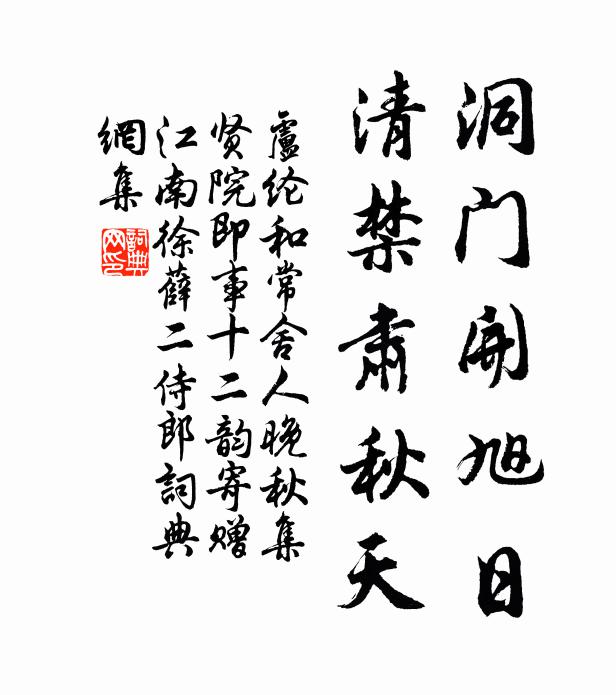 洞门开旭日
清禁肃秋天
盧纶和常舍人晚秋集
贤院即事十二韵寄赠
江南徐薛二侍郎詞典
網集
詞典
网印